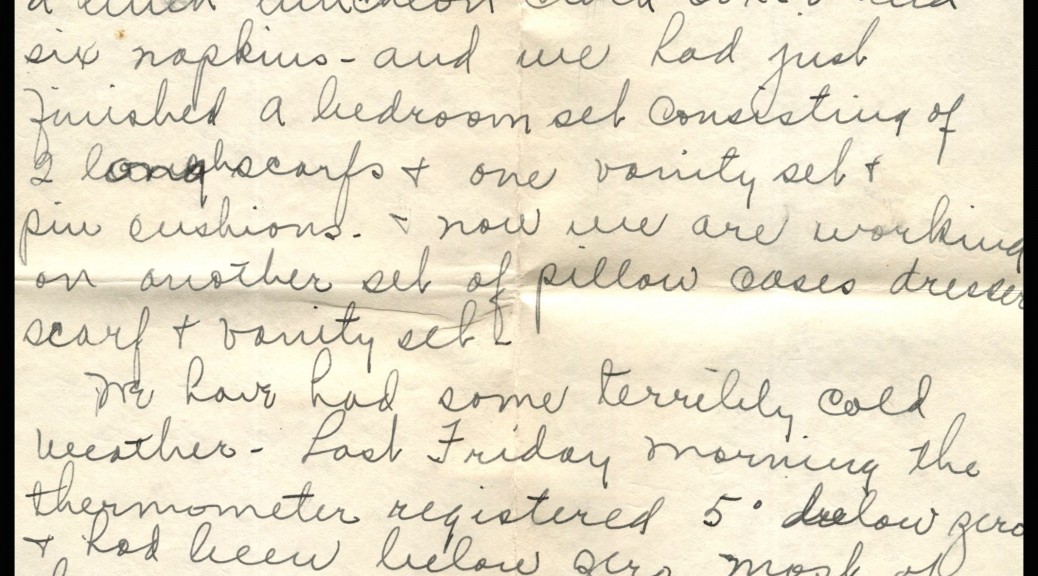 a luncheon cloth and
six napkins - and we had just
finished a bedroom set consisting of
2 long scarfs + one vanity set +
pin cushions. + now we are working
on another set of pillow cases dresser
scarf + vanity set -
We have had some terribly cold
weather - Last Friday morning the
thermometer registered 5° below zero
+ had been below zero most of